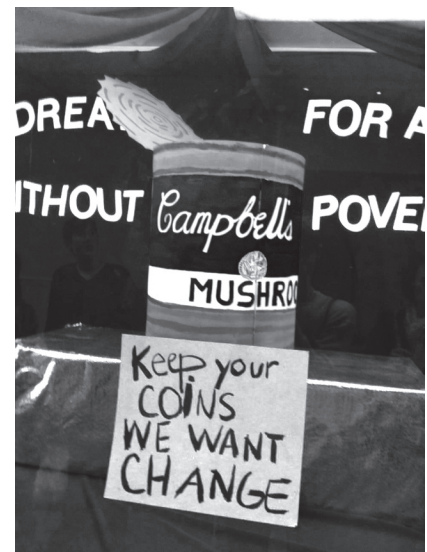 DREA
FOR A
ITHOUT
POVE
Campbell's
MUSHROO
Keep your
COINS
WE WANT
CHANGE